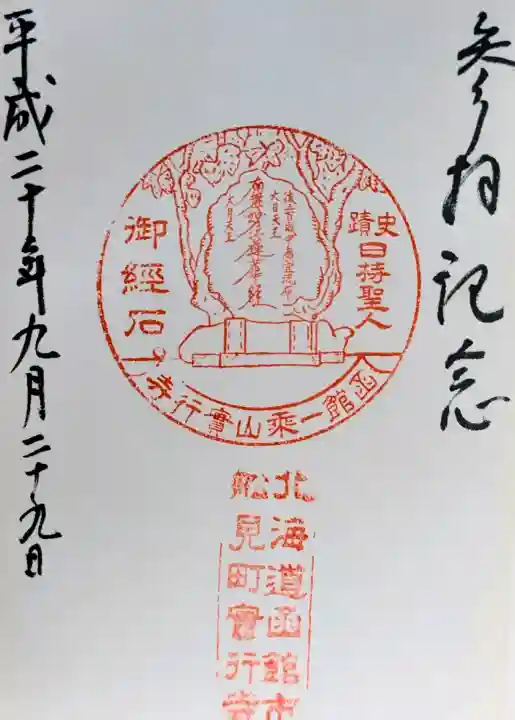 参拝記念
史蹟
日持聖人
南無妙法蓮華経
大日天王
御經石
函館一乘山實行寺
北海道函館市
船見町實行寺
平成二十年九月二十九日